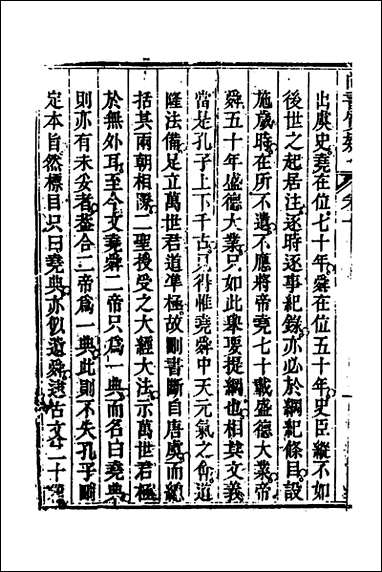 出虞史堯在位七十年舜在位五十年史臣縱不如
後世之起居注逐時逐事紀錄亦必於綱紀條目設
施歲時在所不遺不應將帝堯七十載盛德大業帝
舜五十年盛德大業只如此舉要提綱也相其文義
當是孔子上下千古只得惟堯舜中天元氣之會道
隆法備足立萬世君道準極故刪書斷自唐虞而總
括其兩朝相際二聖授受之大經大法示萬世君極
於無外耳至今文堯舜二帝只為一典而名曰堯典
則亦有未妥者蓋合二帝為一典此則不失孔子刪
定本旨然標目只曰堯典亦似遺舜逮古文二十